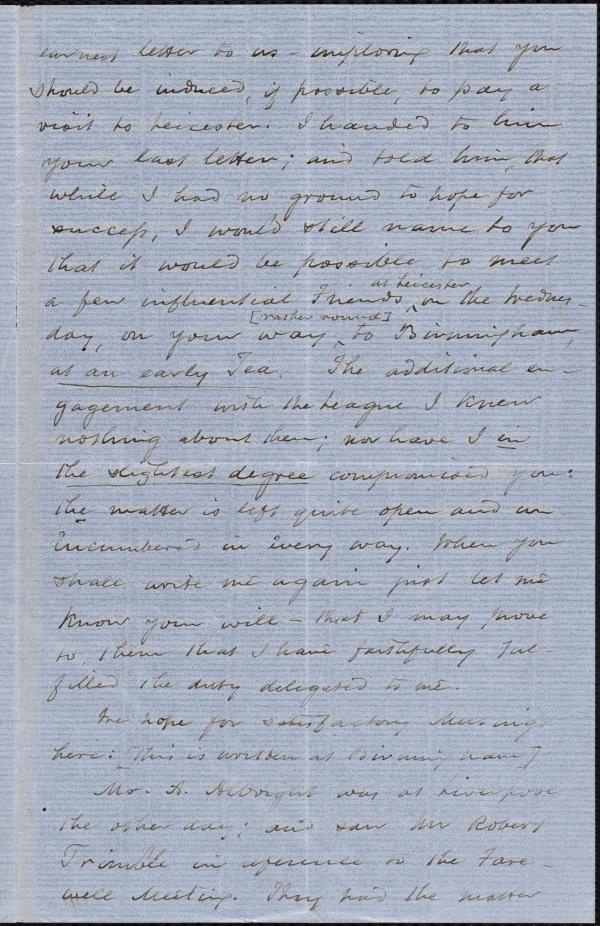 earnest letter to us - imploring that you
should be induced, if possible, to pay a
visit to Leicester. I handed to him
your last letter; and told him, that
while I had no ground to hope for
success, I would still name to you
that it would be possible to meet
at Leicester
a few influential Friends, on the Wednes-
[rather round]
day, on your way to Birmingham,
at an early Tea. The additional en-
gagement with the League I knew
nothing about then; nor have I in
the slightest degree compromised you:
the matter is left quite open and un
encumbered in every way. When you
shall write me again just let me
know your will - that I may prove
to them that I have faithfully ful
filled the duty delegated to me.
We hope for satisfactory Meetings
here: [This is written at Birmingham]
Mr. A. Albright was at Liverpool
the other day; and saw Mr Robert
Trimble in reference to the Fare-
well Meeting. They had the matter